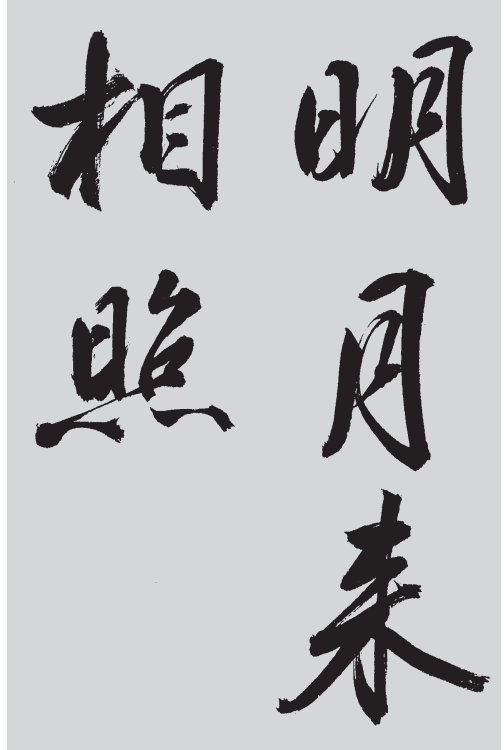 明月来
相照